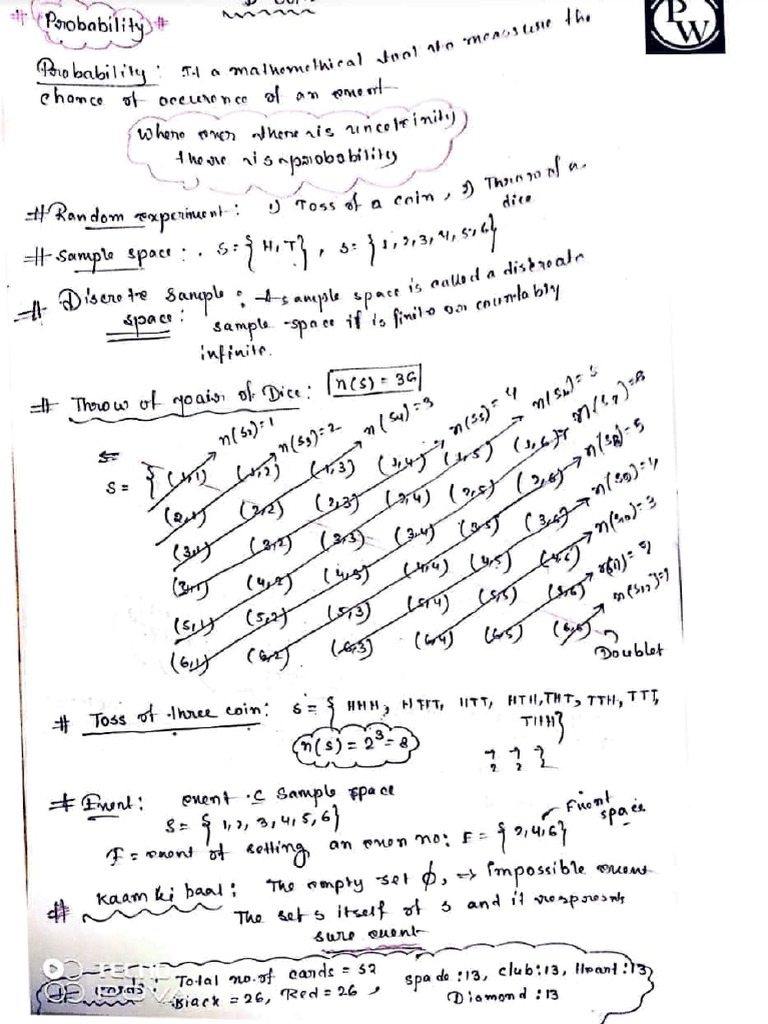 # Probability #
PW
Probability : It a mathemethical tool to measure the
chance of occurence of an event
Where ever there is uncertainity
there is a probability
# Random experiment : 1) Toss of a coin, 2) Throw of a
dice
# Sample space : . S = { H, T } , S = { 1, 2, 3, 4, 5, 6 }
# Discrete Sample : A sample space is called a discreate
space : sample space if is finite or countably
infinite.
# Throw of pair of Dice : n(s) = 36
n(S2)=1 n(S3)=2 n(S4)=3 n(S5)=4
S = { (1,1) (1,2) (1,3) (1,4) (1,5) (1,6)
(2,1) (2,2) (2,3) (2,4) (2,5) (2,6) n(S8)=5
(3,1) (3,2) (3,3) (3,4) (3,5) (3,6) n(S9)=4
(4,1) (4,2) (4,3) (4,4) (4,5) (4,6) n(S10)=3
(5,1) (5,2) (5,3) (5,4) (5,5) (5,6)
(6,1) (6,2) (6,3) (6,4) (6,5) (6,6)
Doublet
# Toss of three coin : S = { HHH, HTT, HTH, THT, TTH, TTT,
THH}
n(s) = 2³ = 8
# Event : event ⊂ Sample space
S = { 1, 2, 3, 4, 5, 6 }
Event space
E = event of getting an even no: E = { 2, 4, 6 }
# Kaam ki baat : The empty set ϕ, → Impossible event
The set S itself of S and it represents
sure event
# Cards : Total no. of cards = 52
Black = 26, Red = 26 , spade : 13, club : 13, Heart : 13,
Diamond : 13